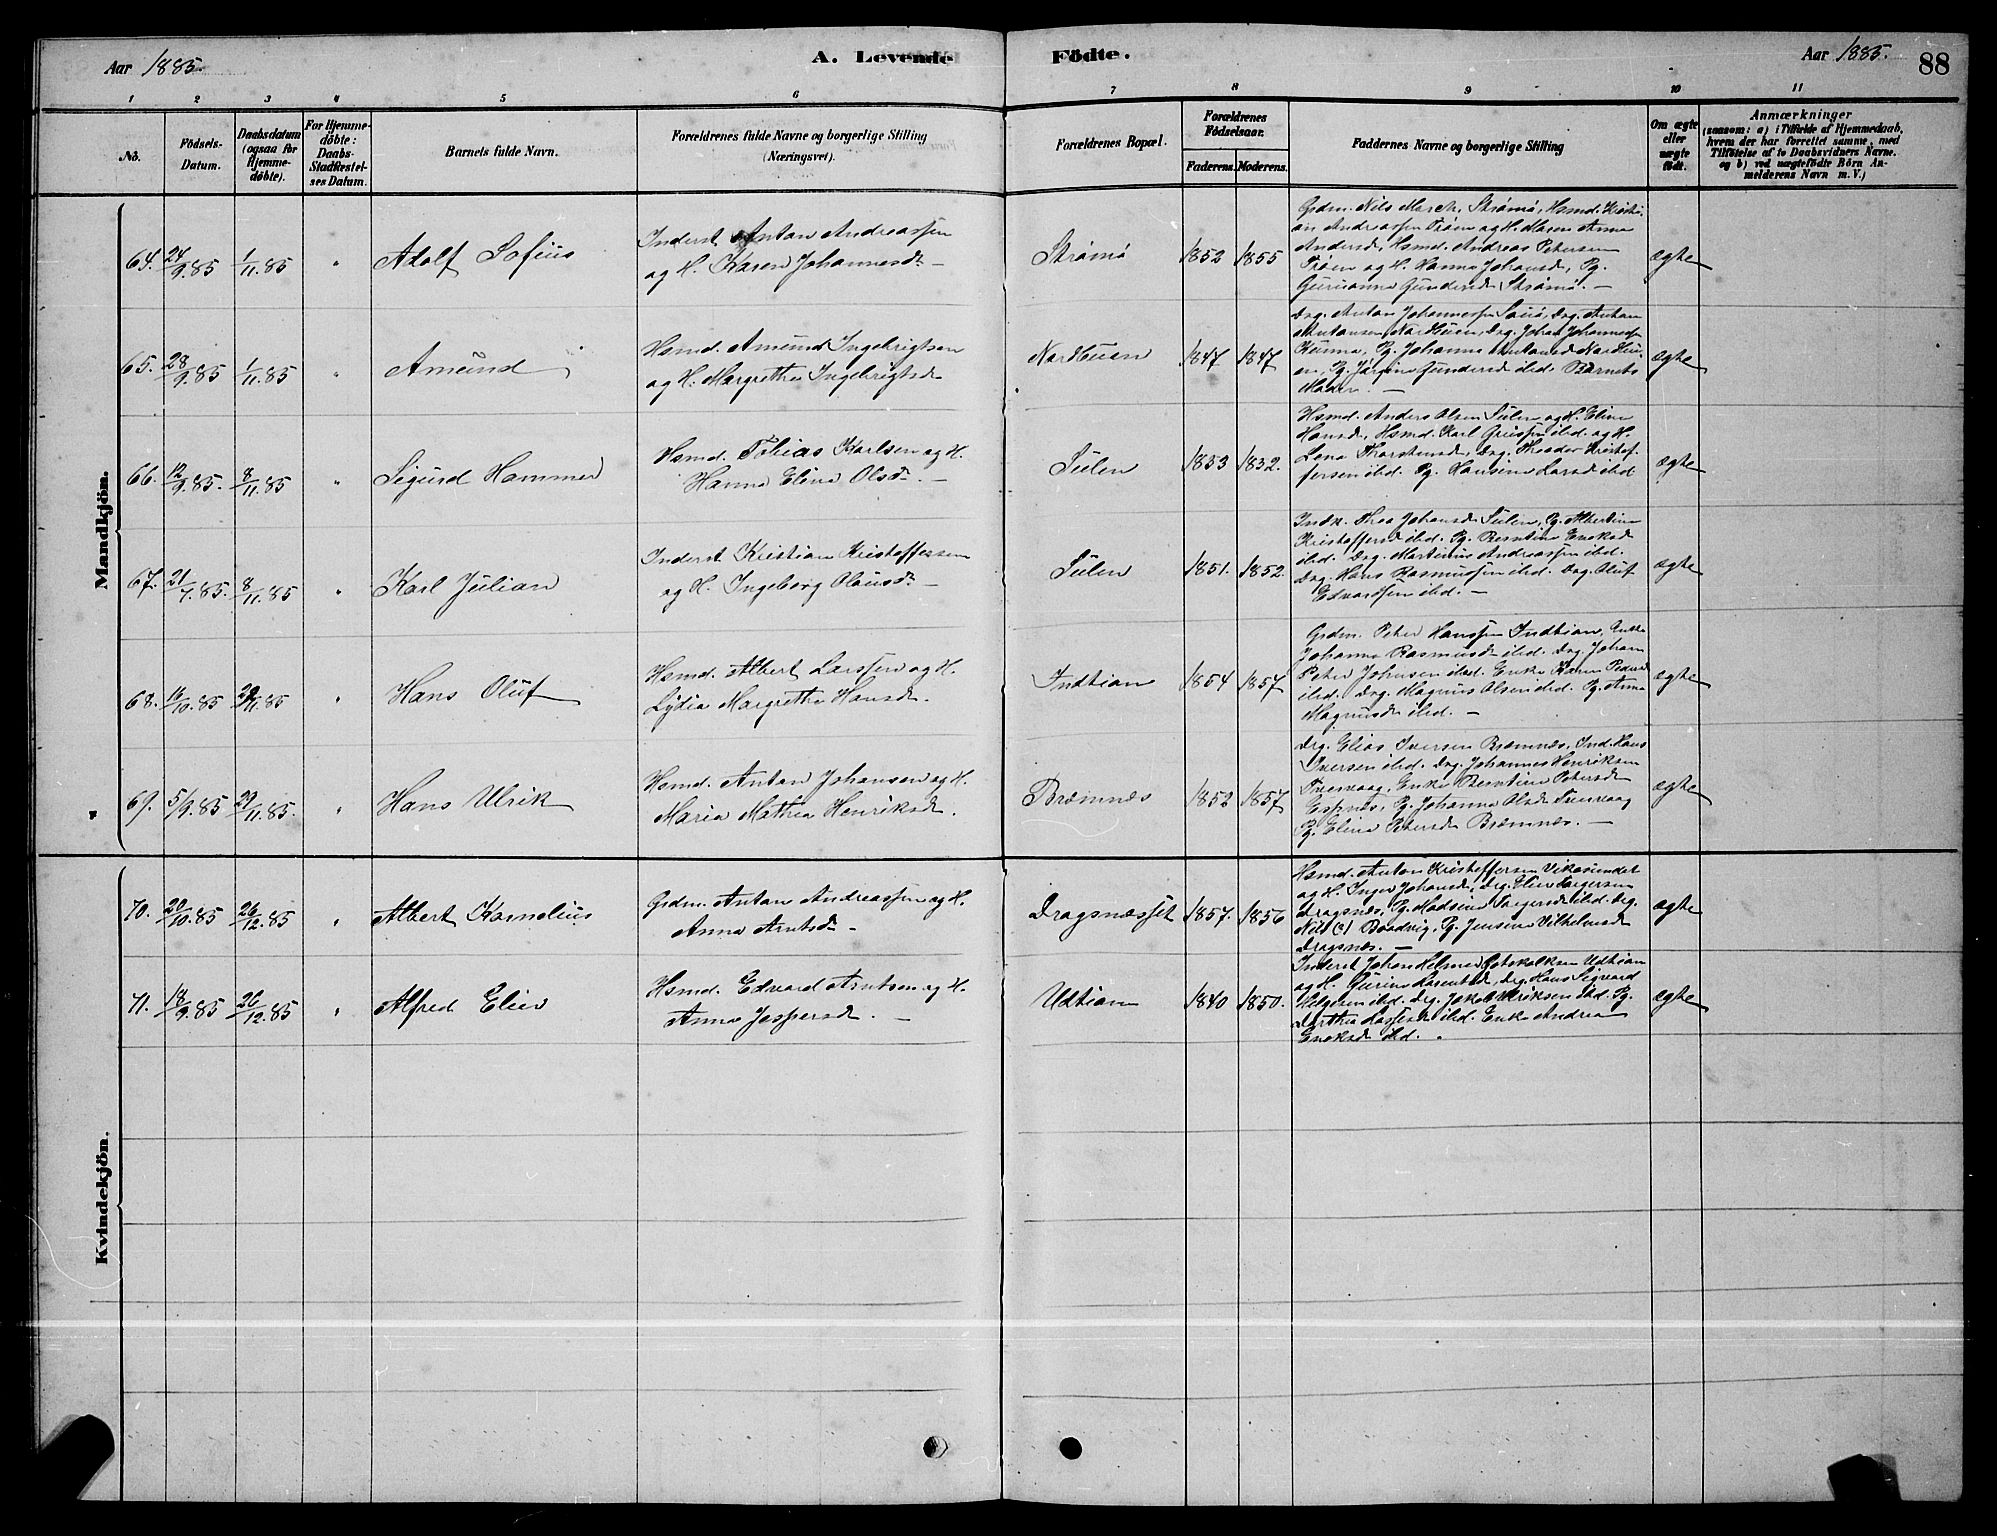 Aar 1885.
A. Levende Födte.
Aar 1885.
88
1 2 3 4 5 6 7 8 9 10 11
No.
Födsels-
Datum.
Daabsdatum
(ogsaa for
Hjemme-
döbte).
For Hjemme-
döbte:
Daabs-
Stadfæstel-
ses Datum.
Barnets fulde Navn.
Forældrenes fulde Navne og borgerlige Stilling
(Næringsvei).
Forældrenes Bopæl.
Forældrenes
Födselsaar.
Faderens.
Moderens.
Faddernes Navne og borgerlige Stilling
Om ægte
eller
uægte
født.
Anmærkninger
(saasom: a) i Tilfælde af Hjemmedaab,
hvem der har forrettet samme, med
Tilföielse af to Daabsvidners Navne,
og b) ved uægtefödte Börn An-
melderens Navn m. V.)
Mandkjön.
64. 24/9.85 1/11.85 " Adolf Sofius
Inderst Anton Andreassen
og H. Karen Johannesd. —
Strømø 1852 1855
Grdm. Nils March, Strømø, Hsmd. Kristi-
an Andreassen Trøen og H. Maren Anna
Andersd, Hsmd. Andreas Petersen
Trøen og H. Hanna Johansd, Pg.
Gurianna Gundersd Strømø. —
ægte
65. 28/9.85 1/11.85 " Amund
Hsmd. Amund Ingebrigtsen
og H. Margrethe Ingebrigtsd.
Nordbuen 1847 1847
Drg. Anton Johannessen Drg. Anton
Antonsen Nordbuen, Drg. Johan Johannessen
Kunna, Pg. Johanna Antonsd Nordbu-
en, Pg. Jørgine Gundersd ibd. Barnets
Moder. —
ægte
66. 12/9.85. 8/11.85 " Sigurd Hammer
Hsmd. Tobias Karlsen og H.
Hanna Elina Olsd. —
Sulen 1853 1832.
Hsmd. Anders Olsen Sulen og H. Elina
Hansd, Hsmd. Karl ibd. og H.
Lena Thorstensd, Drg. Theodor Kristof-
fersen ibd. Pg. Hansina Larsd ibd
ægte
67. 21/7.85. 8/11.85 " Karl Julian
Inderst Kristian Kristoffersen
og H. Ingeborg Olausd. —
Sulen 1851. 1852.
Thea Johansd Sulen, Pg. Albertine
Kristoffersd ibd. Pg. Berntine Enoksd
ibd. Drg. Martinus Andreassen ibd.
Drg. Hans Rasmussen ibd. Drg. Oluf
Edvardsen ibd. —
ægte
68. /10.85 29/11.85 " Hans Oluf
Hsmd. Albert Larssen og H.
Lydia Margrethe Hansd.
Indtian 1854 1857
Grdm. Peter Hanssen Indtian, Enke
Johanna Rasmusd ibd. Drg. Johan
Peter Johnsen ibd. Enke Karen Pedersd
ibd. Drg. Magnus Olsen ibd. Pg. Anna
Magnusd ibd. —
ægte
69. 5/9.85 29/11.85. " Hans Ulrik
Hsmd. Anton Johansen og H.
Maria Mathea Henriksd.
Bremnes 1852 1857
Drg. Elias Iversen Bremnes, Ind. Hans
Iversen ibd. Drg. Johannes Henriksen
Tvervaag, Enke Berntine Petersd
Espnes, Pg. Johanna Olsd Tvervaag
Pg. Elina Petersd Bremnes. —
ægte
Kvindekjön.
70. 20/10.85 26/12.85 " Albert Kornelius
Grdm. Anton Andreassen og H.
Anna Arntsd. —
Dragsnesset 1857. 1856
Hsmd. Anton Kristoffersen Vikasundet
og H. Inger Johansd, Drg. Eliev
Dragsnes, Pg. Madsine ibd. Drg.
Nils Boadvig, Pg. Jensina Vilhelmsd
Dragsnes. —
ægte
71. 18/9.85 26/12.85 " Alfred Eliev
Hsmd. Edvard Arntsen og H.
Anna Jespersd. —
Udtian 1840 1850.
Inderst Johan Helmer Udtian
og H. Gurine Lorentsd, Drg. Hans Sigvard
ibd. Drg. Jakob Ulriksen ibd. Pg.
Dorthea ibd. Enke Andrea
Enoksd ibd.
ægte